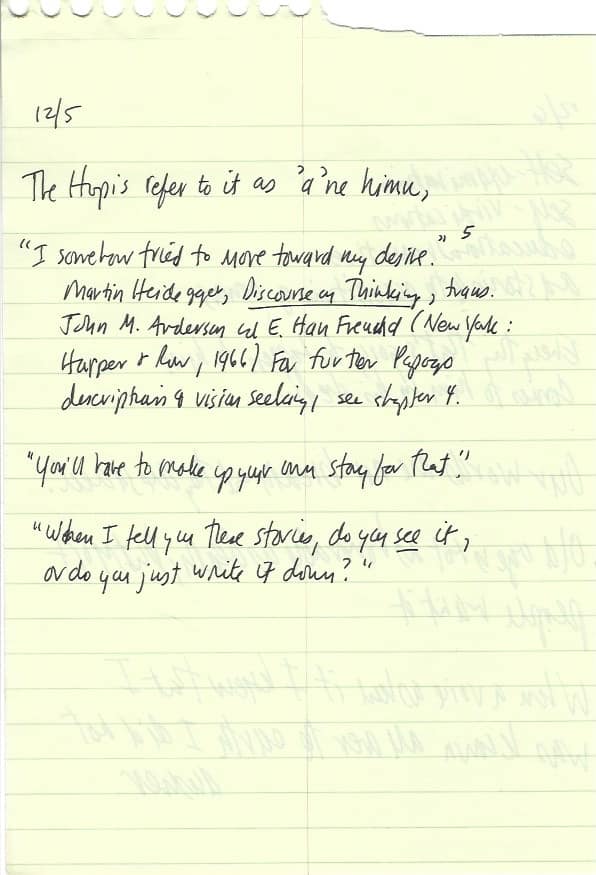 12/5
The Hopis refer to it as 'a'ne himu,
"I somehow tried to move toward my desire." 5
Martin Heidegger, Discourse on Thinking, trans.
John M. Anderson and E. Han Freund (New York:
Harper & Row, 1966) For further Papago
descriptions of vision seeking, see chapter 4.
"You'll have to make up your own story for that."
"When I tell you these stories, do you see it,
or do you just write it down?"